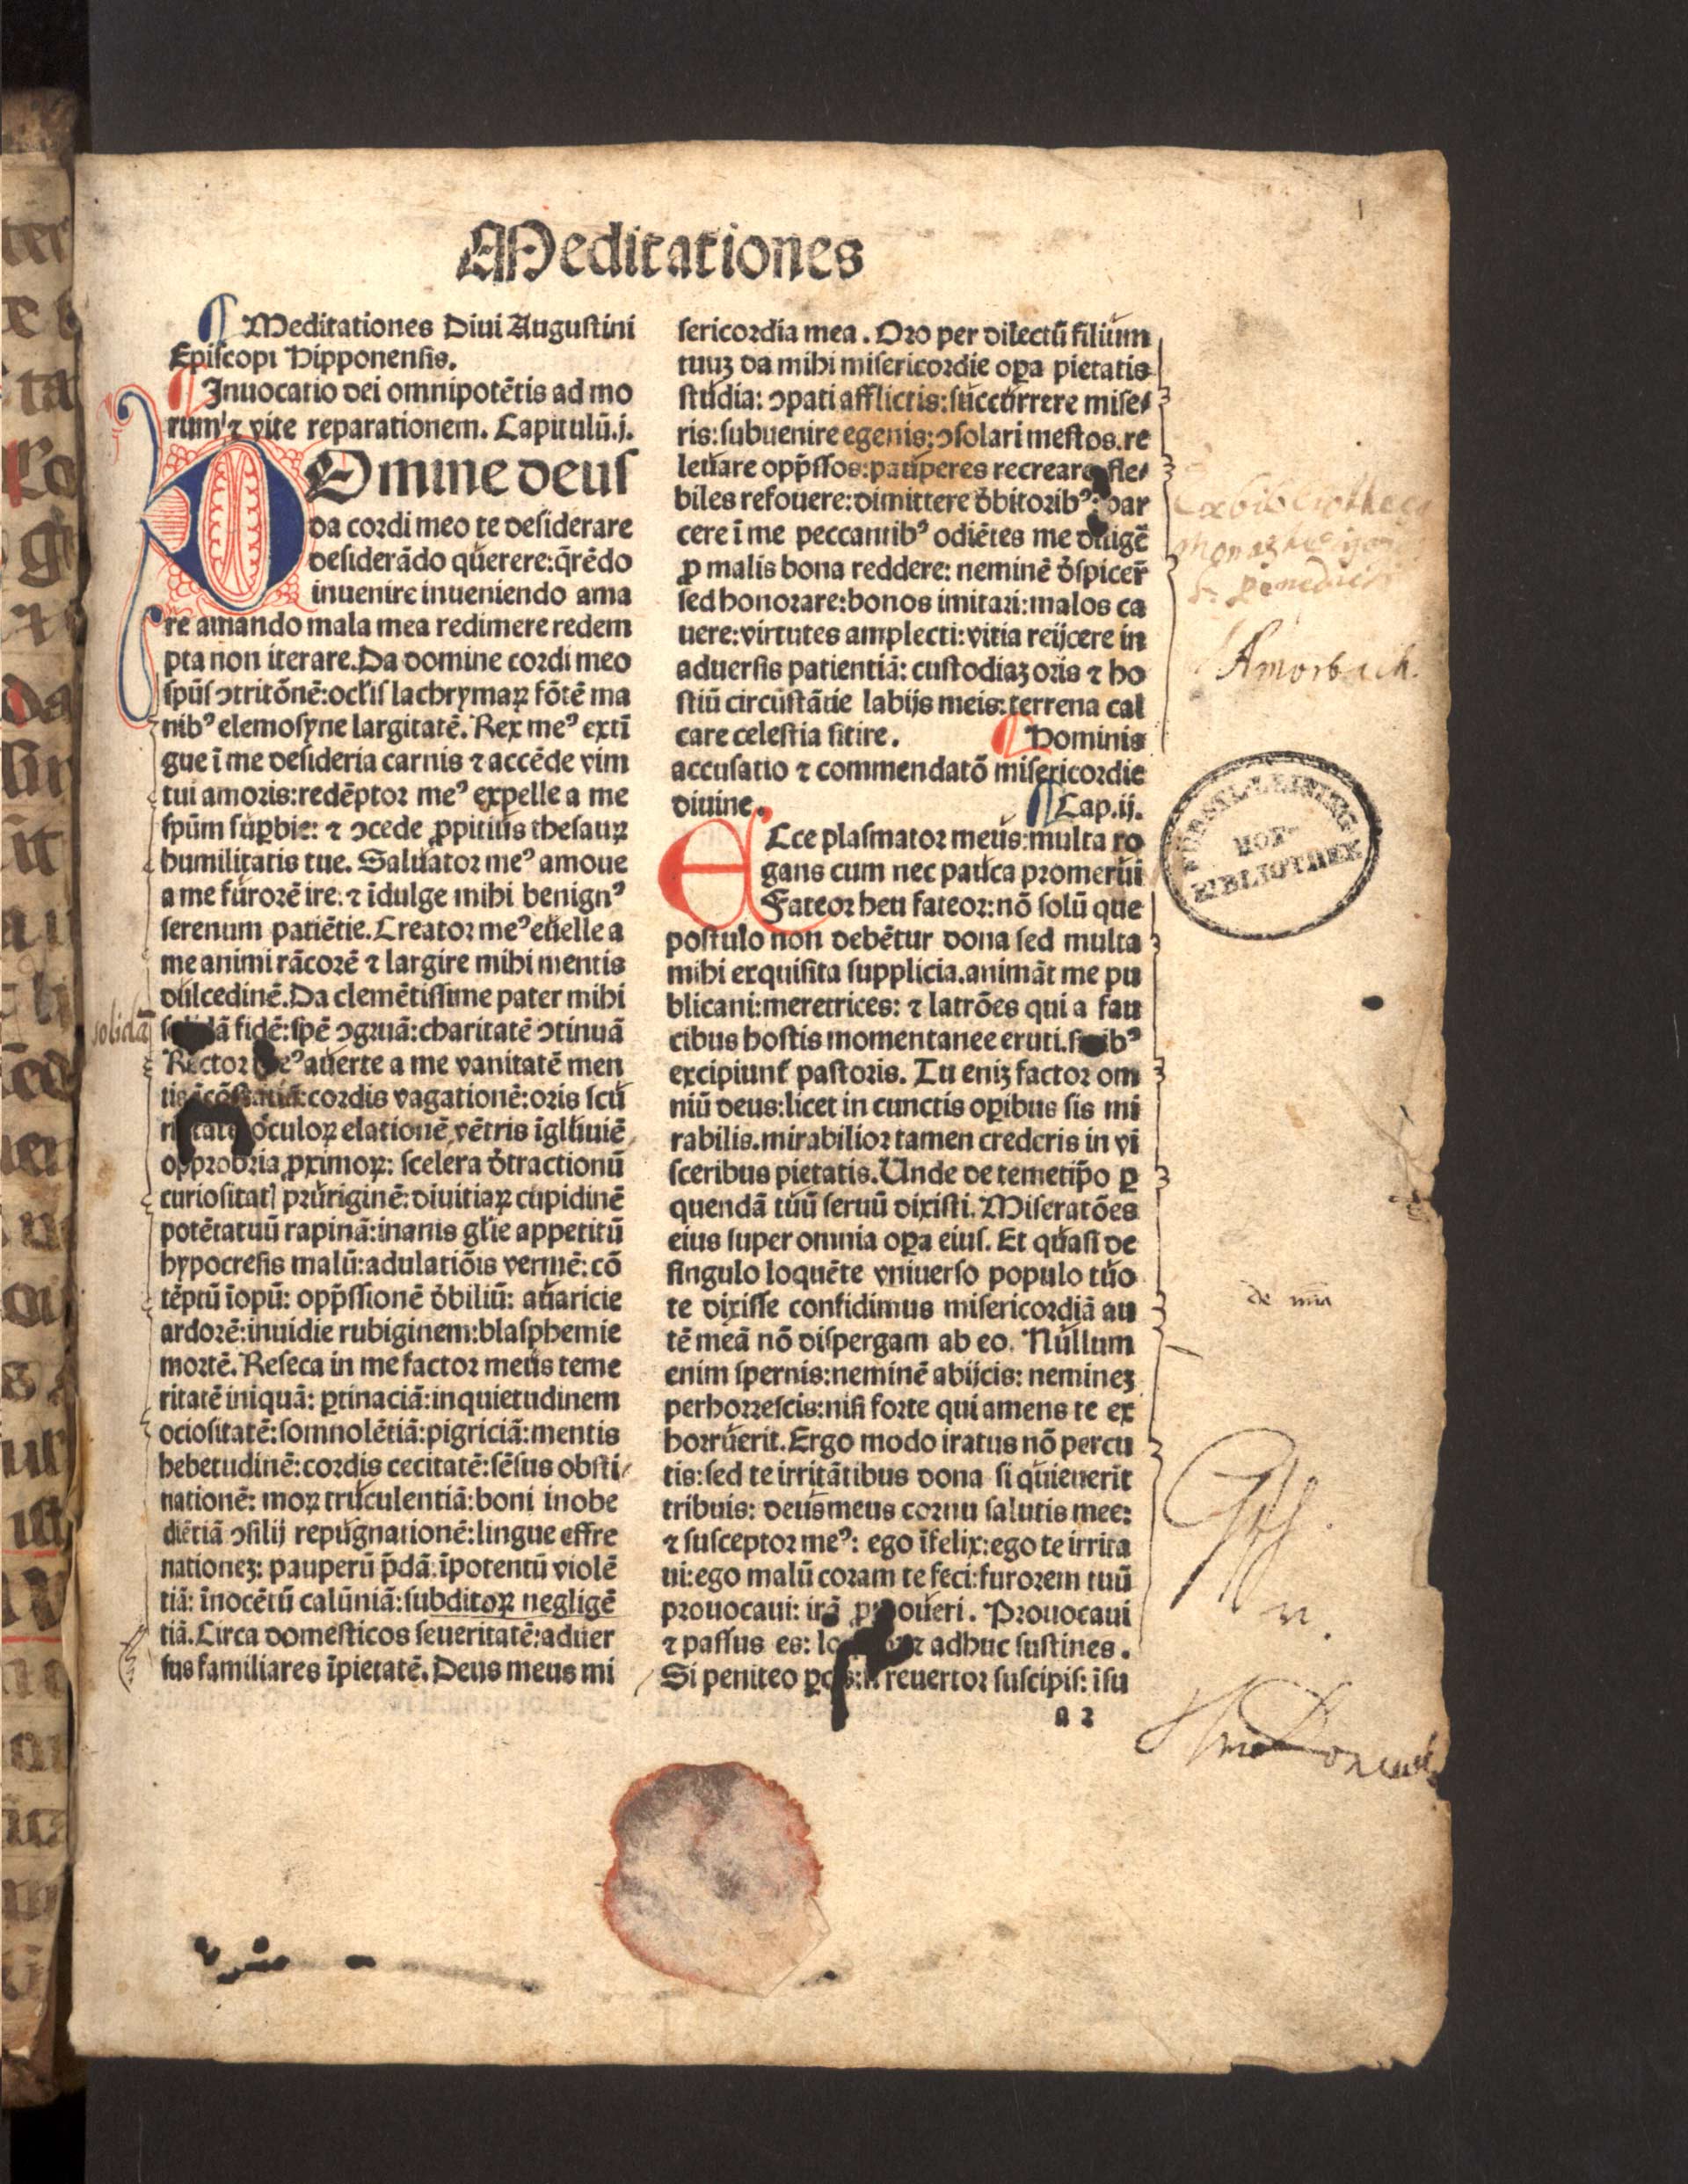 1
Meditationes
¶ Meditationes Diui Augustini
Episcopi Hipponensis.
¶ Inuocatio dei omnipotētis ad mo
rum ⁊ vite reparationem. Capitulū.j.
DOmine deus
da cordi meo te desiderare
desiderādo querere: q̄rēdo
inuenire inueniendo ama
re amando mala mea redimere redem
pta non iterare. Da domine cordi meo
spūs ↄtritōnē: oclis lachrymaꝝ fōtē ma
nibꝰ elemosyne largitatē. Rex meꝰ extī
gue ī me desideria carnis ⁊ accēde vim
tui amoris: redēptor meꝰ expelle a me
spūm suꝑbie: ⁊ ↄcede ꝓpitius thesauꝝ
humilitatis tue. Saluator meꝰ amoue
a me furorē ire: ⁊ īdulge mihi benignꝰ
serenum patiētie. Creator meꝰ euelle a
me animi rācorē ⁊ largire mihi mentis
dulcedinē. Da clemētissime pater mihi
solidā
fidē: spē ↄgruā: charitatē ↄtinuā
Rector meꝰ auerte a me vanitatē men
tis īcōstātiā: cordis vagationē: oris scu
oculoꝝ elationē vētris īgluuiē
opprobria ꝓximoꝝ: scelera d̄tractionū
curiositatꝭ pruriginē: diuitiaꝝ cupidinē
potētatuū rapinā: inanis glīe appetitū
hypocresis malū: adulatiōis vermē: cō
tēptū īopū: opp̄ssionē d̄biliū: auaricie
ardorē: inuidie rubiginem: blasphemie
mortē. Reseca in me factor meus teme
ritatē iniquā: ꝑtinaciā: inquietudinem
ociositatē: somnolētiā: pigriciā: mentis
hebetudinē: cordis cecitatē: sēsus obsti
nationē: moꝝ truculentiā: boni inobe
diētiā ↄsilij repugnationē: lingue effre
nationeꝫ: pauperū p̄dā: īpotentū violē
tiā: īnocētū calūniā: subditoꝝ negligē
tiā. Circa domesticos seueritatē: aduer
sus familiares īpietatē. Deus meus mi
sericordia mea. Oro per dilectū filium
tuuꝫ da mihi misericordie oꝑa pietatis
studia: ↄpati afflictis: succurrere mise
ris: subuenire egenis: ↄsolari mestos. re
leuare opp̄ssos: pauperes recreare fle
biles refouere: dimittere d̄bitoribꝰ: par
cere ī me peccantibꝰ odiētes me diligē
ꝓ malis bona reddere: neminē d̄spicer̄
sed honorare: bonos imitari: malos ca
uere: virtutes amplecti: vitia reijcere in
aduersis patientiā: custodiaꝫ oris ⁊ ho
stiū circūstātie labijs meis: terrena cal
care celestia sitire. ¶ Hominis
accusatio ⁊ commendatō misericordie
diuine. ¶ Cap.ij.
ECce plasmator meus: multa ro
gans cum nec pauca promerui
Fateor heu fateor: nō solū que
postulo non debētur dona sed multa
mihi exquisita supplicia. animāt me pu
blicani: meretrices: ⁊ latrōes qui a fau
cibus hostis momentanee eruti.
excipiunt pastoris. Tu eniꝫ factor om
niū deus: licet in cunctis oꝑibus sis mi
rabilis. mirabilior tamen crederis in vi
sceribus pietatis. Unde de temetip̄o ꝑ
quendā tuū seruū dixisti. Miseratōes
eius super omnia oꝑa eius. Et quasi de
singulo loquēte vniuerso populo tuo
te dixisse confidimus misericordiā au
tē meā nō dispergam ab eo. Nullum
enim spernis: neminē abijcis: nemineꝫ
perhorrescis: nisi forte qui amens te ex
horruerit. Ergo modo iratus nō percu
tis: sed te irritātibus dona si quieuerīt
tribuis: deus meus cornu salutis mee:
⁊ susceptor meꝰ: ego īfelix: ego te irrita
ui: ego malū coram te feci: furorem tuū
prouocaui: irā Prouocaui
⁊ passus es: adhuc sustines.
Si peniteo reuertor suscipis: īsu
a 2
Ex bibliotheca
Monasterij
S. Benedicti
Amorbach.
FÜRSTL. LEINING.
HOF-
BIBLIOTHEK
de mīa